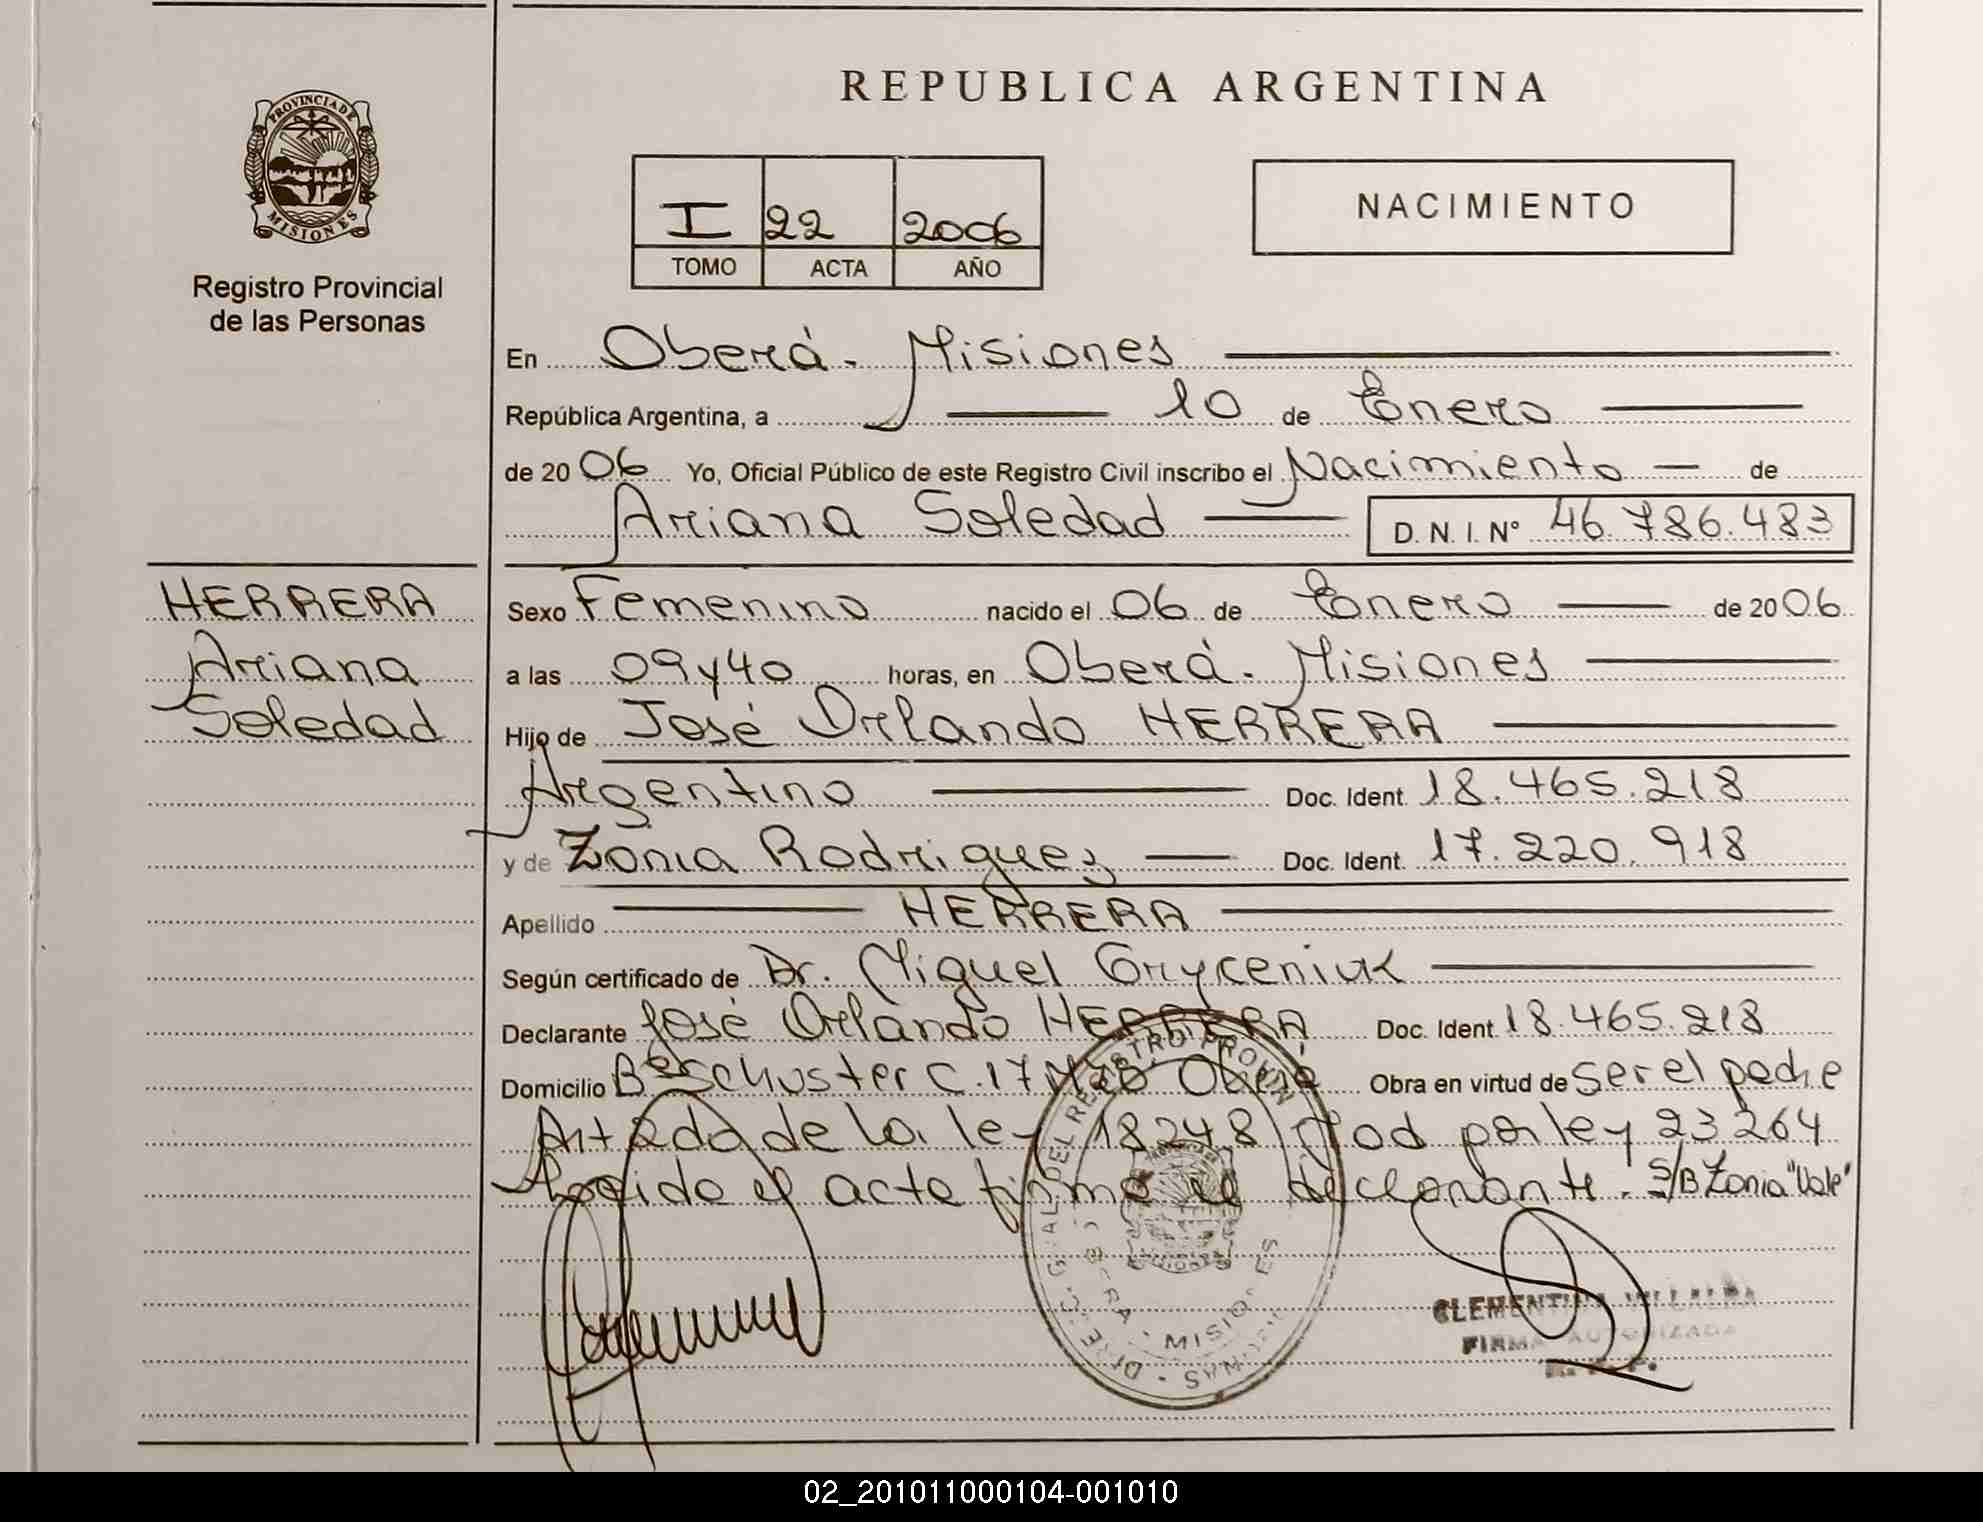 REPUBLICA ARGENTINA
PROVINCIA DE
MISIONES
Registro Provincial
de las Personas
I 22 2006
TOMO ACTA AÑO
NACIMIENTO
En Oberá - Misiones
República Argentina, a 10 de Enero
de 20 06 Yo, Oficial Público de este Registro Civil inscribo el Nacimiento de
Ariana Soledad D.N.I. Nº 46.786.483
HERRERA
Ariana
Soledad
Sexo Femenino nacido el 06 de Enero de 20 06
a las 09 y 40 horas, en Oberá - Misiones
Hijo de José Orlando HERRERA
Argentino Doc. Ident. 18.465.218
y de Zonia Rodriguez Doc. Ident. 17.220.918
Apellido HERRERA
Según certificado de Dr. Miguel Gryceniuk
Declarante José Orlando HERRERA Doc. Ident 18.465.218
Domicilio Bº Schuster C.17 Oberá Obra en virtud de ser el padre
de la ley 18248 Mod por ley 23264
el acta firma el declarante. S/B Zonia "Vale"
MISIONES
CLEMENTINA VILLALBA
FIRMA AUTORIZADA
02_201011000104-001010